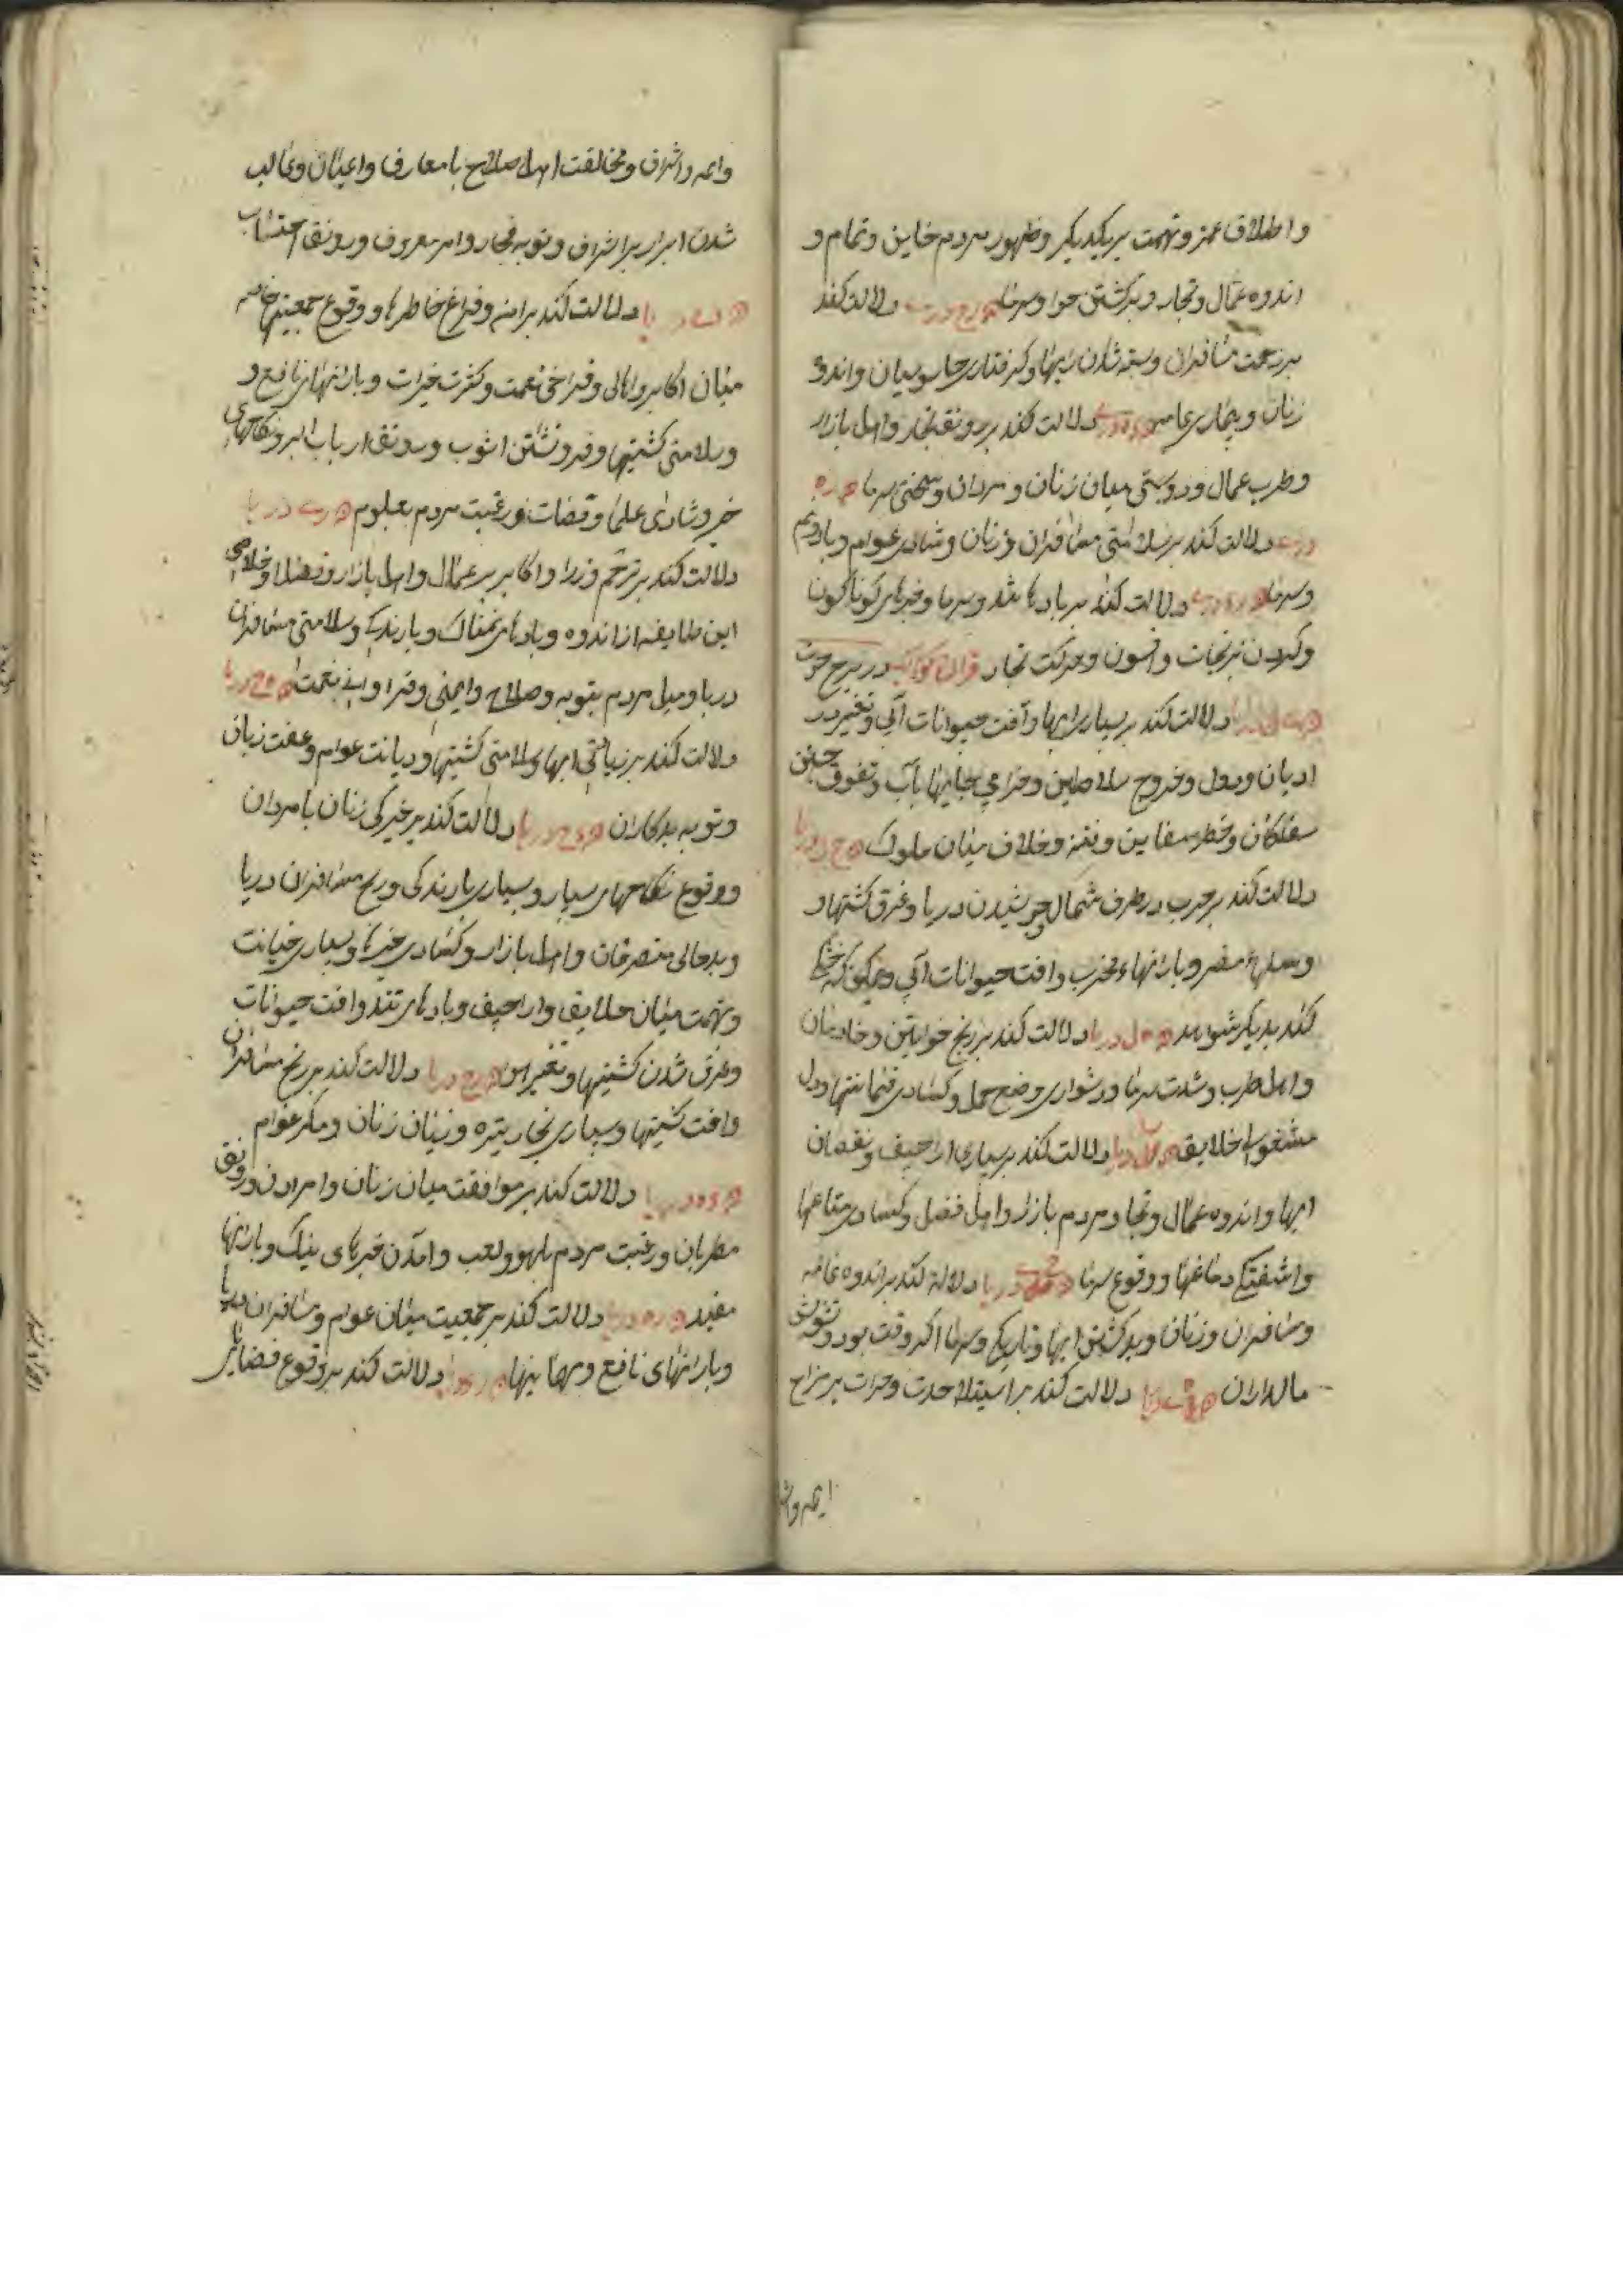 و اطلاق غمز و تهمت بر یکدیگر و ظهور مردم خاین و تمام و
اندوه عمال و تجار و برکشتن هوا و سرما دلالت کند
بر زحمت مسافران و بسته شدن راهها و کرفتاری جاسوسان و اندوه
زنان و بیماری عامه دلالت کند بر رونق تجار و اهل بازار
و طرب عمال و دوستی میان زنان و مردان و سختی سرما
دلالت کند بر سلامتی مسافران و زنان و شادی عوام و باد و نم
و سرما دلالت کند بر بادهاء تند و سرما و خبرهای کوناکون
و کردن نیرنجات و افسون و حرکت تجار قران کواکب در برج حوت
دلالت کند بر بسیاری ابرها و آفت حیوانات آبی و تغییر در
ادیان و دول و خروج سلاطین و خرابی جایها بآب و تفوق جستن
سفلکان و خطر سفاین و فتنه و خلاف میان ملوک
دلالت کند بر حرب در طرف شمال و جوشیدن دریا و غرق کشتیها و
و سیلهاء مضر و بارانهاء مخرب و آفت حیوانات آبی
کنند بدیکر شواهد دلالت کند بر رنج خواتین و خادمان
و اهل طرب و شدت سرما و دشواری وضع حمل و کسادی و دل
مشغولی خلایق دلالت کند بر بسیاری اراجیف و نقصان
ابها و اندوه عمال و تجار و مردم بازار و اهل فضل و کسادی متاعها
و آشفتکی دماغها و وقوع سرما دلالة کند بر اندوه عامه
و مسافران و زنان و برکشتن ابرها و تاریکی و سرما اکر وقت بود و تشویش
مالداران دلالت کند بر استیلا حدت و حرارت بر مزاج
ایمه و اشراف
و ایمه و اشراف و مخالفت اهل صلاح با معارف و اعیان و غالب
شدن ابرار بر اشراف و توبه فجار و امر معروف و رونق احتساب
دلالت کند بر امن و فراغ خاطرها و وقوع جمعیتها خاصه
میان اکابر و اهالی و فراخی نعمت و کثرت خیرات و بارانهای نافع و
و سلامتی کشتیها و فرونشستن آشوب و رونق ارباب البر و نکاحهای
خیر و شادی علما و قضات و رغبت مردم بعلوم
دلالت کند بر ترحم وزرا و اکابر بر عمال و اهل بازار و فضلا و خلاصی
این طایفه از اندوه و بادهای نمناک و بارندکی و سلامتی مسافران
دریا و میل مردم بتوبه و صلاح و ایمنی و فراوانی نعمت
دلالت کند بر زیادتی ابها و سلامتی کشتیها و دیانت عوام و عفت زنان
و توبه بدکاران دلالت کند بر خیرکی زنان با مردان
و وقوع نکاحهای بسیار و بسیاری بارندکی و ربح مسافران دریا
و بدحالی متصرفان و اهل بازار و کسادی و بسیاری خیانت
و تهمت میان خلایق و اراجیف و بادهای تند و آفت حیوانات
و غرق شدن کشتیها و تغیر دلالت کند بر رنج مسافران
و آفت کشتیها و بسیاری بخار تیره و زیان زنان و مکر عوام
دلالت کند بر موافقت میان زنان و امردان و رونق
مطربان و رغبت مردم بلهو و لعب و آمدن خبرهای نیک و بارانها
مفید دلالت کند بر جمعیت میان عوام و مسافران دریا
و بارانهای نافع و مهمانیها دلالت کند بر وقوع فضایل